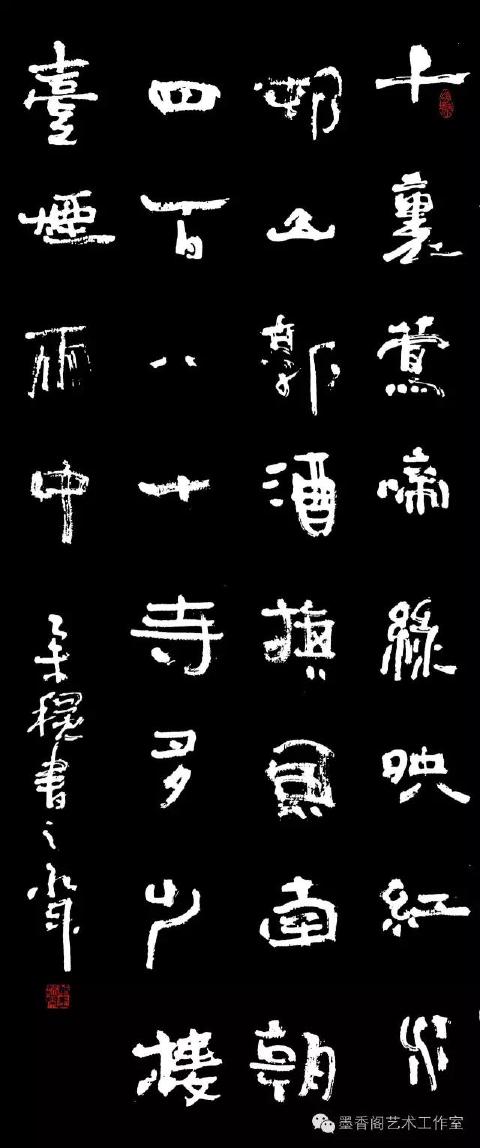 千裏鶯啼綠映紅水
邨山郭酒旗風南朝
四百八十寺多少樓
臺煙雨中
乙未 書之
墨香阁艺术工作室